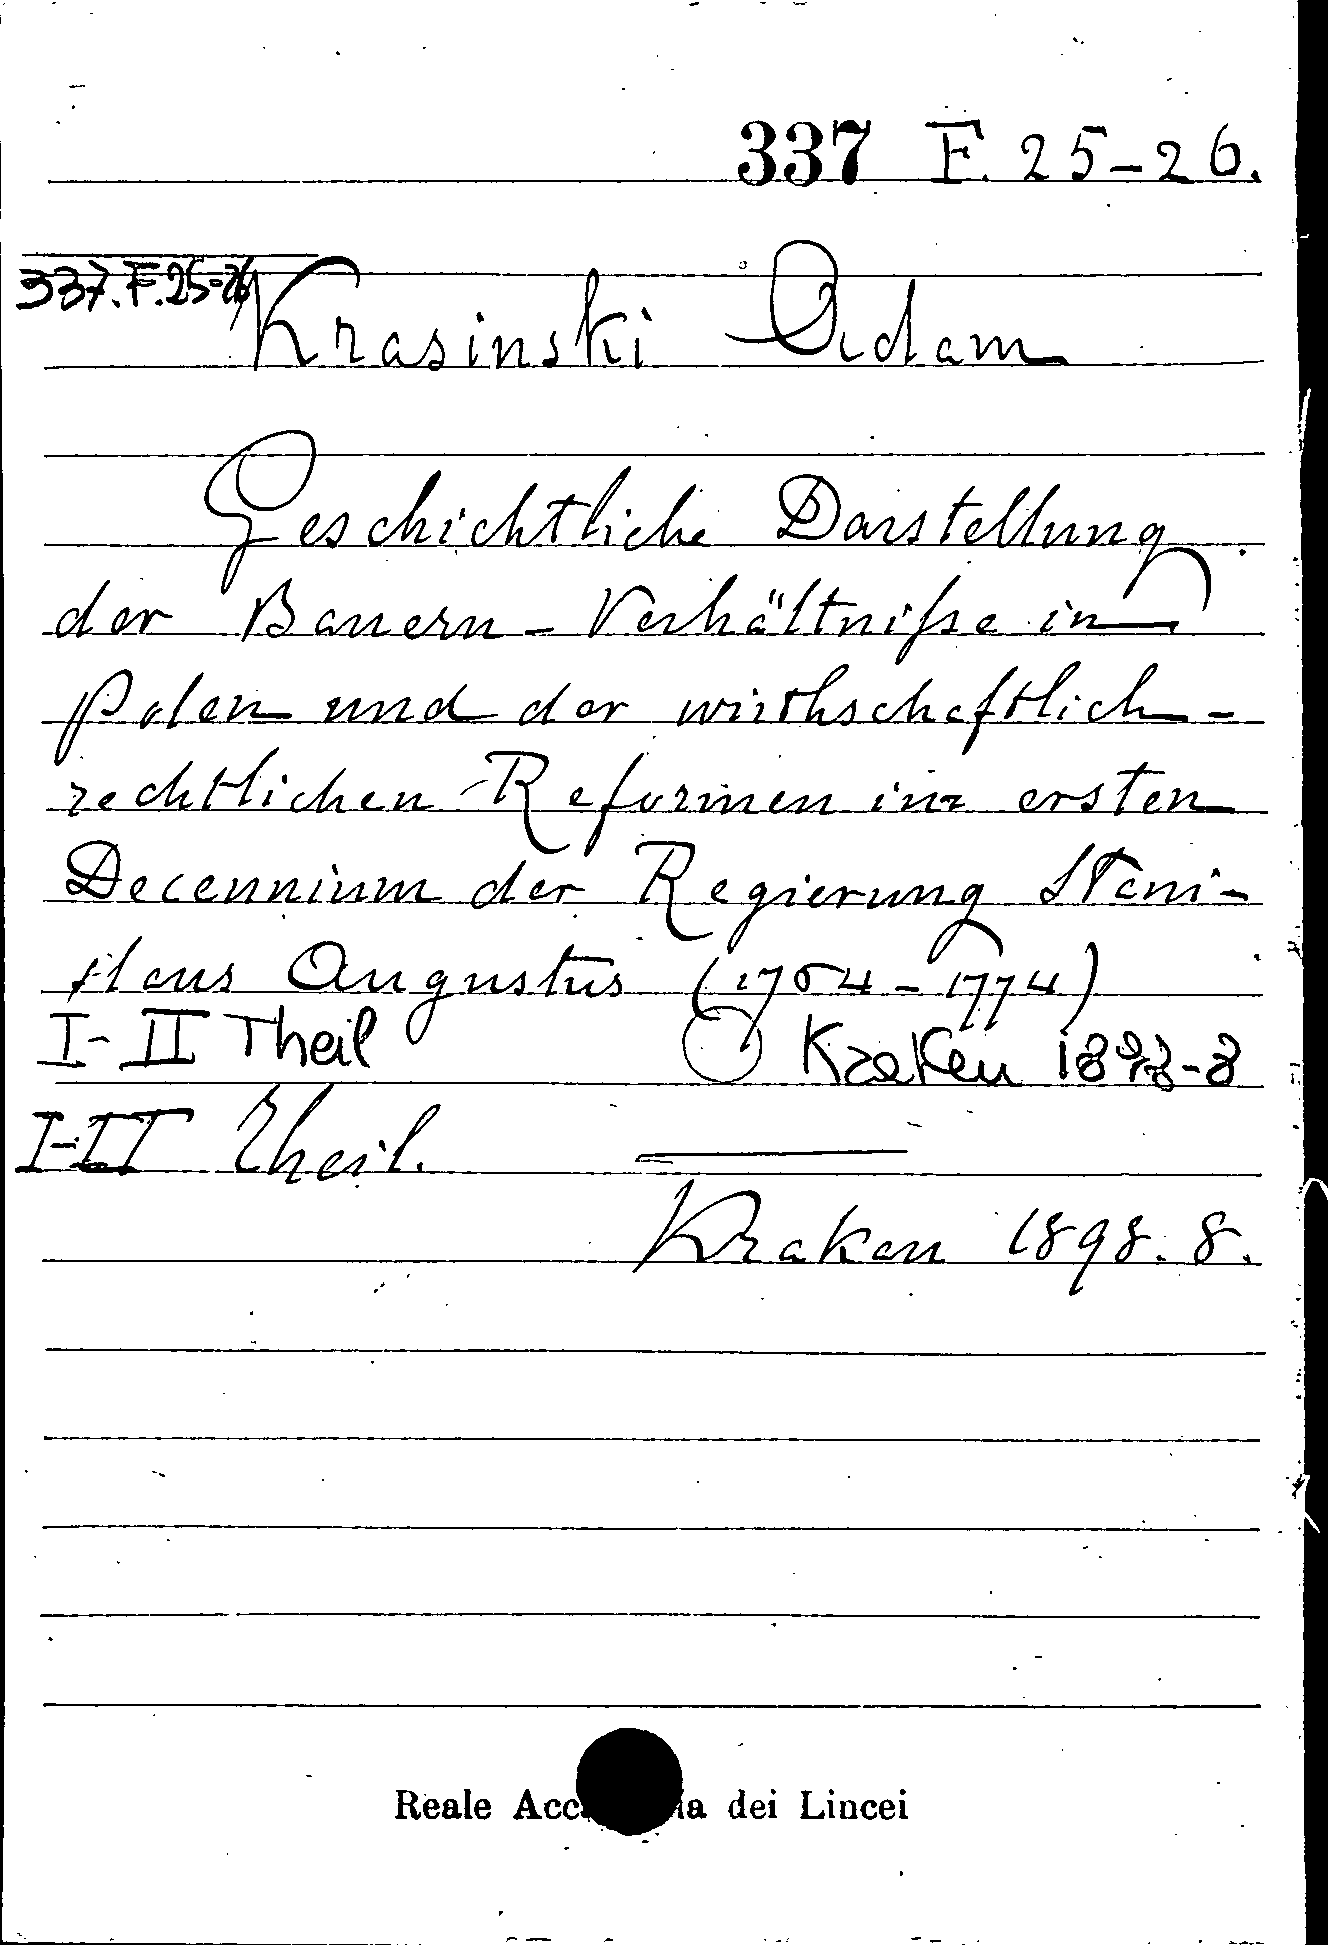 337 F. 25-26.
337.F.25-26
Krasinski Adam
Geschichtliche Darstellung
der Bauern-Verhältniſse in
Polen und der wirthschaftlich-
rechtlichen Reformen im ersten
Decennium der Regierung Stani-
slaus Augustus (1764-1774)
I-II Theil Krakau 1898-8
I-II Theil.
Krakau 1898. 8.
Reale Acc ia dei Lincei